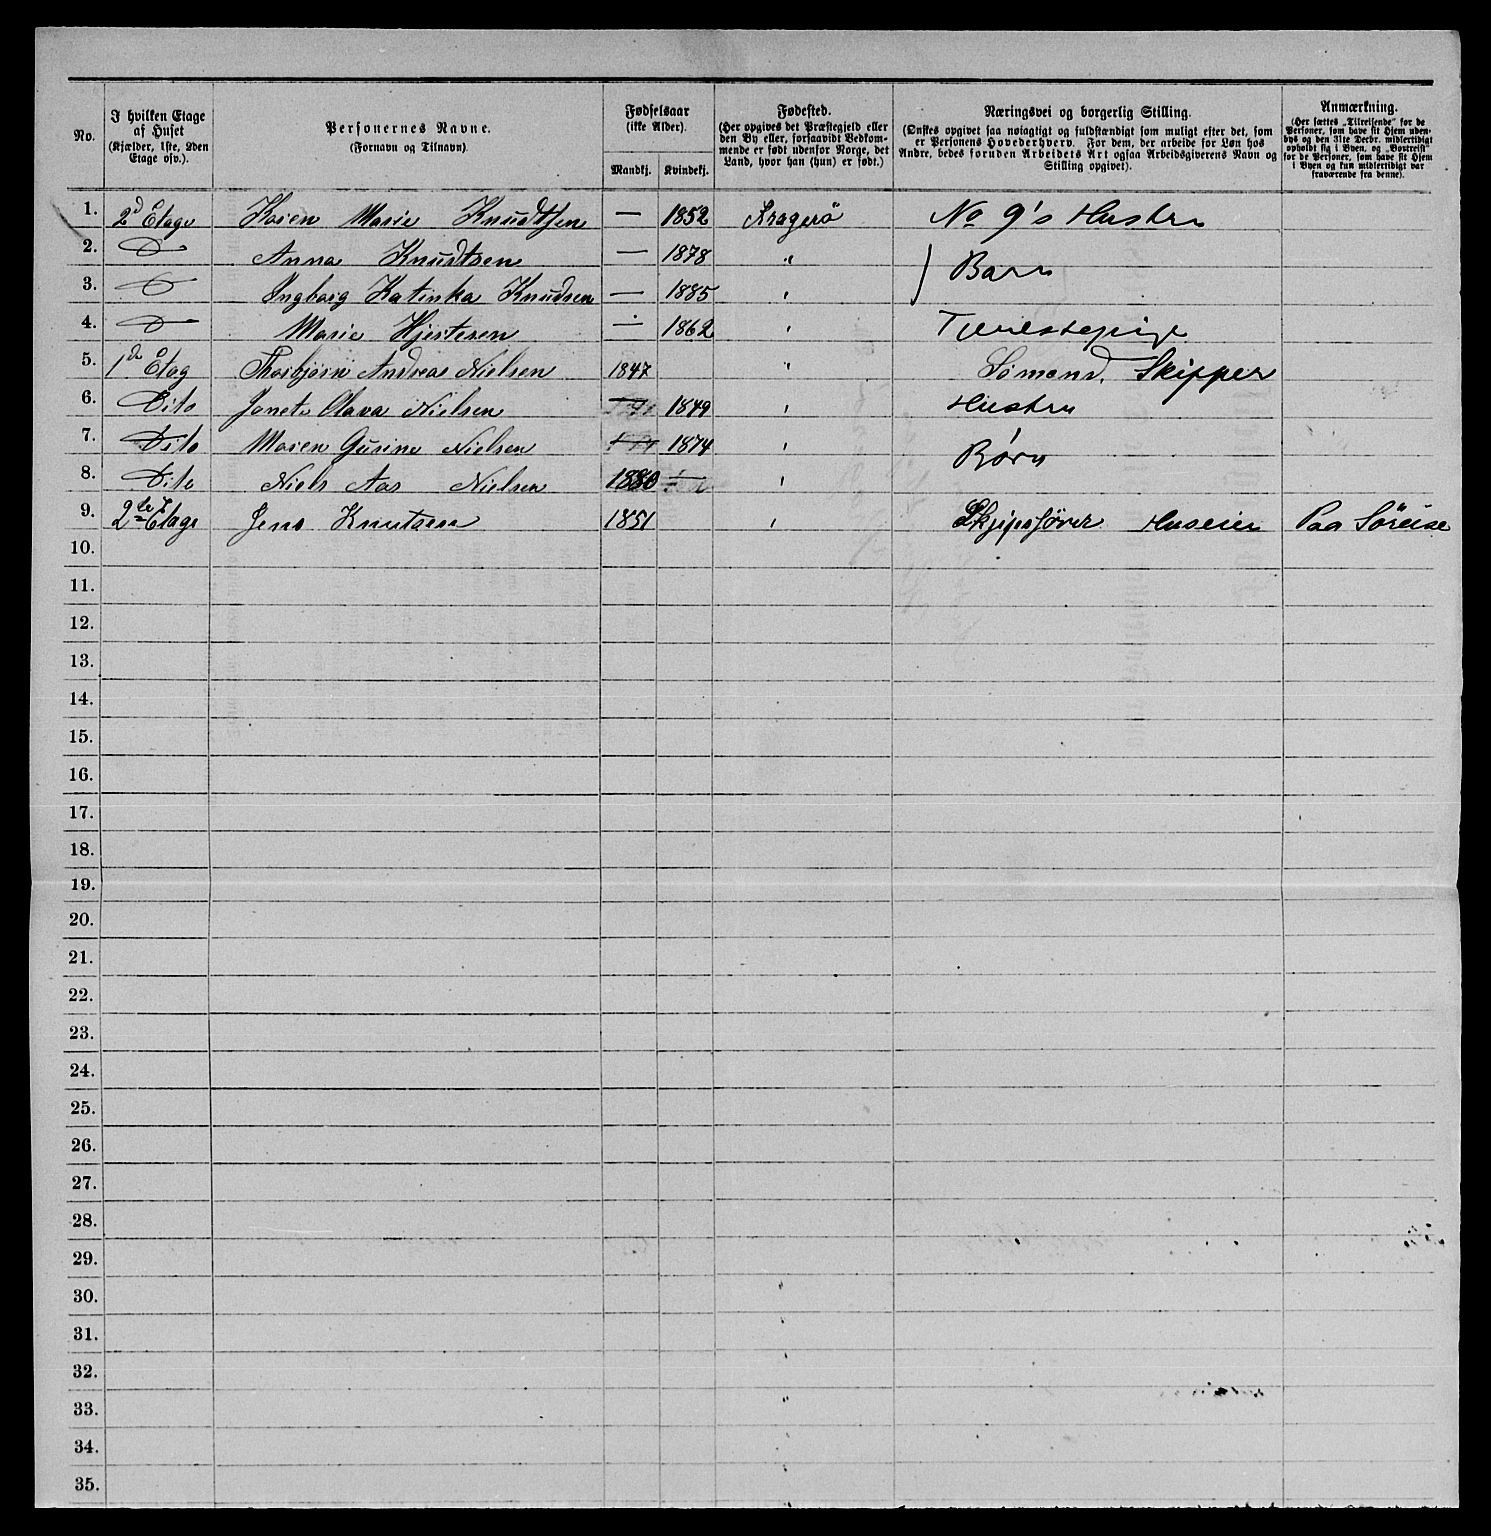 No.
I hvilken Etage af Huset
(Kjælder, 1ste, 2den Etage osv.).
Personernes Navne.
(Fornavn og Tilnavn).
Fødselsaar
(ikke Alder).
Mandkj. Kvindekj.
Fødested.
(Her opgives det Præstegjeld eller den By eller, forsaavidt Vedkommende er født udenfor Norge, det Land, hvor han (hun) er født.)
Næringsvei og borgerlig Stilling.
(Ønskes opgivet saa nøiagtigt og fuldstændigt som muligt efter det, som er Personens Hovederhverv. For dem, der arbeide for Løn hos Andre, bedes foruden Arbeidets Art ogsaa Arbeidsgiverens Navn og Stilling opgivet).
Anmærkning.
(Her sættes „Tilreisende" for de Personer, som have sit Hjem udenbys og den 31te Decbr. midlertidigt opholdt sig i Byen, og „Bortreist" for de Personer, som have sit Hjem i Byen og kun midlertidigt var fraværende fra denne).
1. 2d Etage Karen Marie Knudtsen — 1852 Kragerö No 9's Hustru
2. D Anna Knudtsen — 1878 " } Barn
3. D Ingborg Katinka Knudsen — 1885 "
4. D Marie Hjertesen — 1862 " Tjenestepige
5. 1de Etag Thorbjørn Andreas Nielsen 1847 " Sömand. Skipper
6. Dito Janete Olava Nielsen — 1849 " Hustru
7. Dito Maren Gusine Nielsen — 1874 " Børn
8. Dito Niels Aas Nielsen 1880 — "
9. 2de Etage Jens Knutsen 1851 " Skipsfører Huseier Paa Söreise
10.
11.
12.
13.
14.
15.
16.
17.
18.
19.
20.
21.
22.
23.
24.
25.
26.
27.
28.
29.
30.
31.
32.
33.
34.
35.